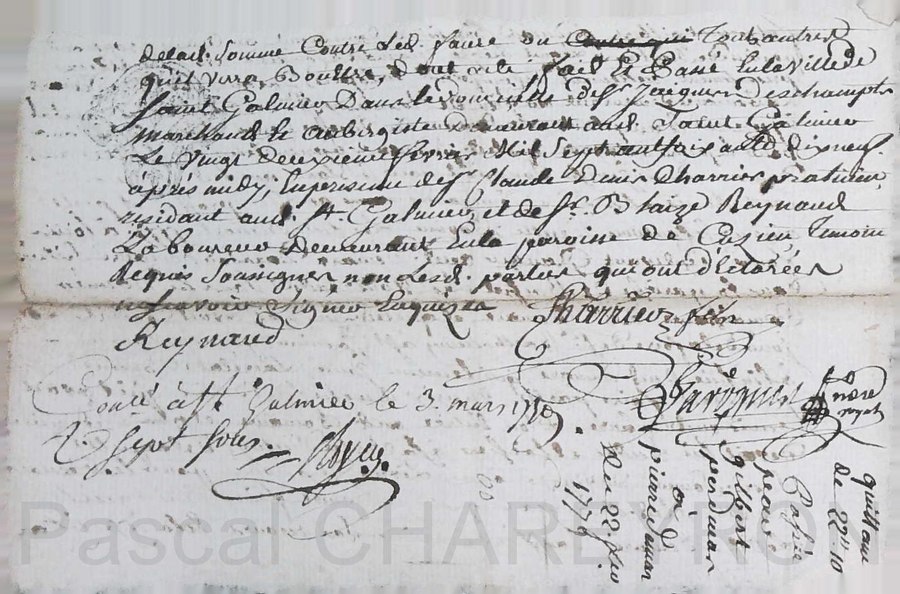 delad. somme Contre led. faure ou Tout autres
quil verra Boultre, dont acte fait Et Passé En la ville de
Saint Galmier Dans le domicille de Sr. Jacques Deschamps
marchand Et aubergiste demeurant aud. Saint Galmier
Le vingt deuxieme fevrier Mil Sept cent soixante dix neuf
après midy, En presence de Sr. Claude Denis Charrier praticien
residant aud. St Galmier, et de Sr. Blaize Reynaud
Laboureur Demeurant En la paroisse de Cuzieu Temoins
Requis Soussignés non Lesd. parties qui ont déclarées
ne Savoir Signer Enquis
Charrier fils
Reynaud
Conlé à St Galmier le 3. mars 1779.
sept sols.
nore
royal
quittance
de 22# 10
Passée
jean
gilbert
perdman
a
pierre
du 22. fev
1779
Pascal CHARLYNON